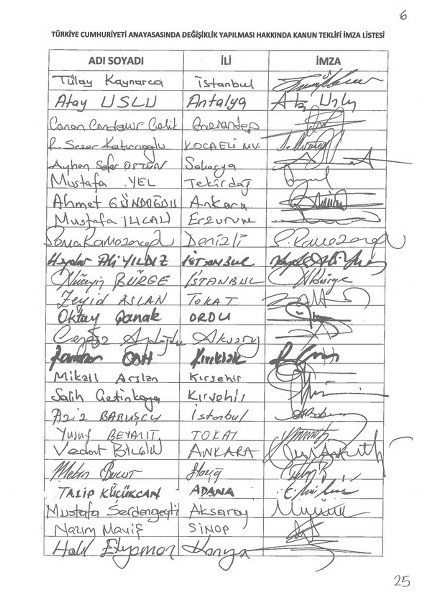 6
TÜRKİYE CUMHURİYETİ ANAYASASINDA DEĞİŞİKLİK YAPILMASI HAKKINDA KANUN TEKLİFİ İMZA LİSTESİ
ADI SOYADI İLİ İMZA
Tülay Kaynarca İstanbul
Atay USLU Antalya Atay Uslu
Canan Candemir Çelik Gaziantep
R. Sezer Katırcıoğlu KOCAELİ MV.
Ayhan Sefer ÜSTÜN Sakarya
Mustafa YEL Tekirdağ
Ahmet GÜNDOĞDU Ankara
Mustafa ILICALI Erzurum
Sema Ramazanoğlu Denizli S. Ramazanoğlu
Haydar Ali YILDIZ İSTANBUL
Hüseyin BÜRGE İSTANBUL
Zeyid ASLAN TOKAT
Oktay Çanak ORDU
Cengiz Aydoğdu Aksaray
Ramazan CAN Kırıkkale
Mikail Arslan Kırşehir
Salih Çetinkaya Kırşehir
Aziz BABUŞCU İstanbul
Yusuf BEYAZIT TOKAT
Vedat BİLGİN ANKARA
Metin Bulut Elazığ
TALİP KÜÇÜKCAN ADANA
Mustafa Serdengeçti Aksaray
Nazım Maviş SİNOP
Halil Etyemez Konya
25